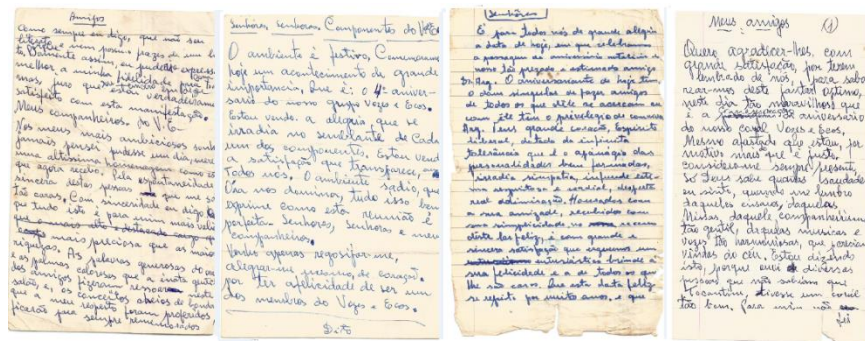 Amigos
Como sempre eu digo, que não sou
melhor, a minha felicidade
mos, pois que estou verdadeiramente
satisfeito com esta manifestação.
Meus companheiros do V.E.
Nos meus mais ambiciosos sonhos
jamais pensei pudesse um dia, merecer
uma altíssima homenagem como esta
que agora recebo, pela espontaneidade
sincera destas pessoas que me são
tão caras. Com sinceridade eu digo
que tudo isto é para mim mais valioso
mais preciosa que as mais
riquezas. As palavras generosas do
e as palmas calorosas que a
dos amigos fizeram
salão, e, os conceitos
que a meu respeito foram proferidos,
ficarão para sempre rememorados
Senhores, Senhoras Componentes do V. E.
O ambiente é festivo, Comemoramos
hoje um acontecimento de grande
importancia, Que é: o 4º aniver-
sario do nosso grupo Vozes e Ecos.
Estou vendo a alegria que se
irradia no semblante de Cada
um dos componentes. Estou vendo
a satisfação que transparece, em
todos nós. O ambiente sadio, que
ora nos domina, tudo isso bem
exprime como esta reunião é
perfeita. Senhores, Senhoras e meus
companheiros.
Venho apenas regosijar-me,
alegrar-me, mesmo, de coração,
por ter a felicidade de ser um
dos membros do Vozes e Ecos.
Dito
Senhores
É para todos nós de grande alegria
a data de hoje, em que celebramos
a passagem do aniversário natalício
nosso tão prezado e estimado amigo
Dr. Arq. O aniversariante de hoje tem
o dom singular de fazer amigos
de todos os que dele se acercam
como ele têm o privilégio de conviver
Arq. seus grande coração, espirito
liberal, dotado de infinita
tolerância que é o apanágio das
personalidades bem formadas,
irradia simpatia, infunde esti-
ma respeitosa e cordial, desperta
real admiração. Honrados com
a sua amizade, recebidos com
sua simplicidade,
disto tão feliz, é com grande e
sincera satisfação que erguemos um
entusiástico brinde à
sua felicidade e a de todos os que
lhe são caros. Que esta data feliz
se repita por muitos anos, e que
Meus amigos (1)
Quero agradecer-hes, com
grande satisfação, por terem
lembrado de nós, para sabo
rear-mos deste jantar ostimo,
neste dia tão maravilhoso que
é a de aniversário
do nosso coral Vozes e Ecos.
Mesmo afastado que estou, por
motivo mais que é justo,
considero-me sempre presente,
só Deus sabe quantas saudades
eu sinto, quando me lembro
daqueles ensaios, daquelas
Missas, daquele companheirismo
tão gentil, daquelas musicas e
vozes tão harmoniosas, que parecia
vindas do céu. Estou dizendo
isto, porque ouvi de diversas
pessoas que não sabiam que
Tocantins, tivesse um coral
tão bem. Para mim não
foi